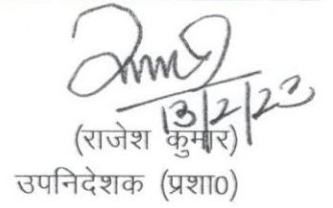 13/2/23
(राजेश कुमार)
उपनिदेशक (प्रशा0)